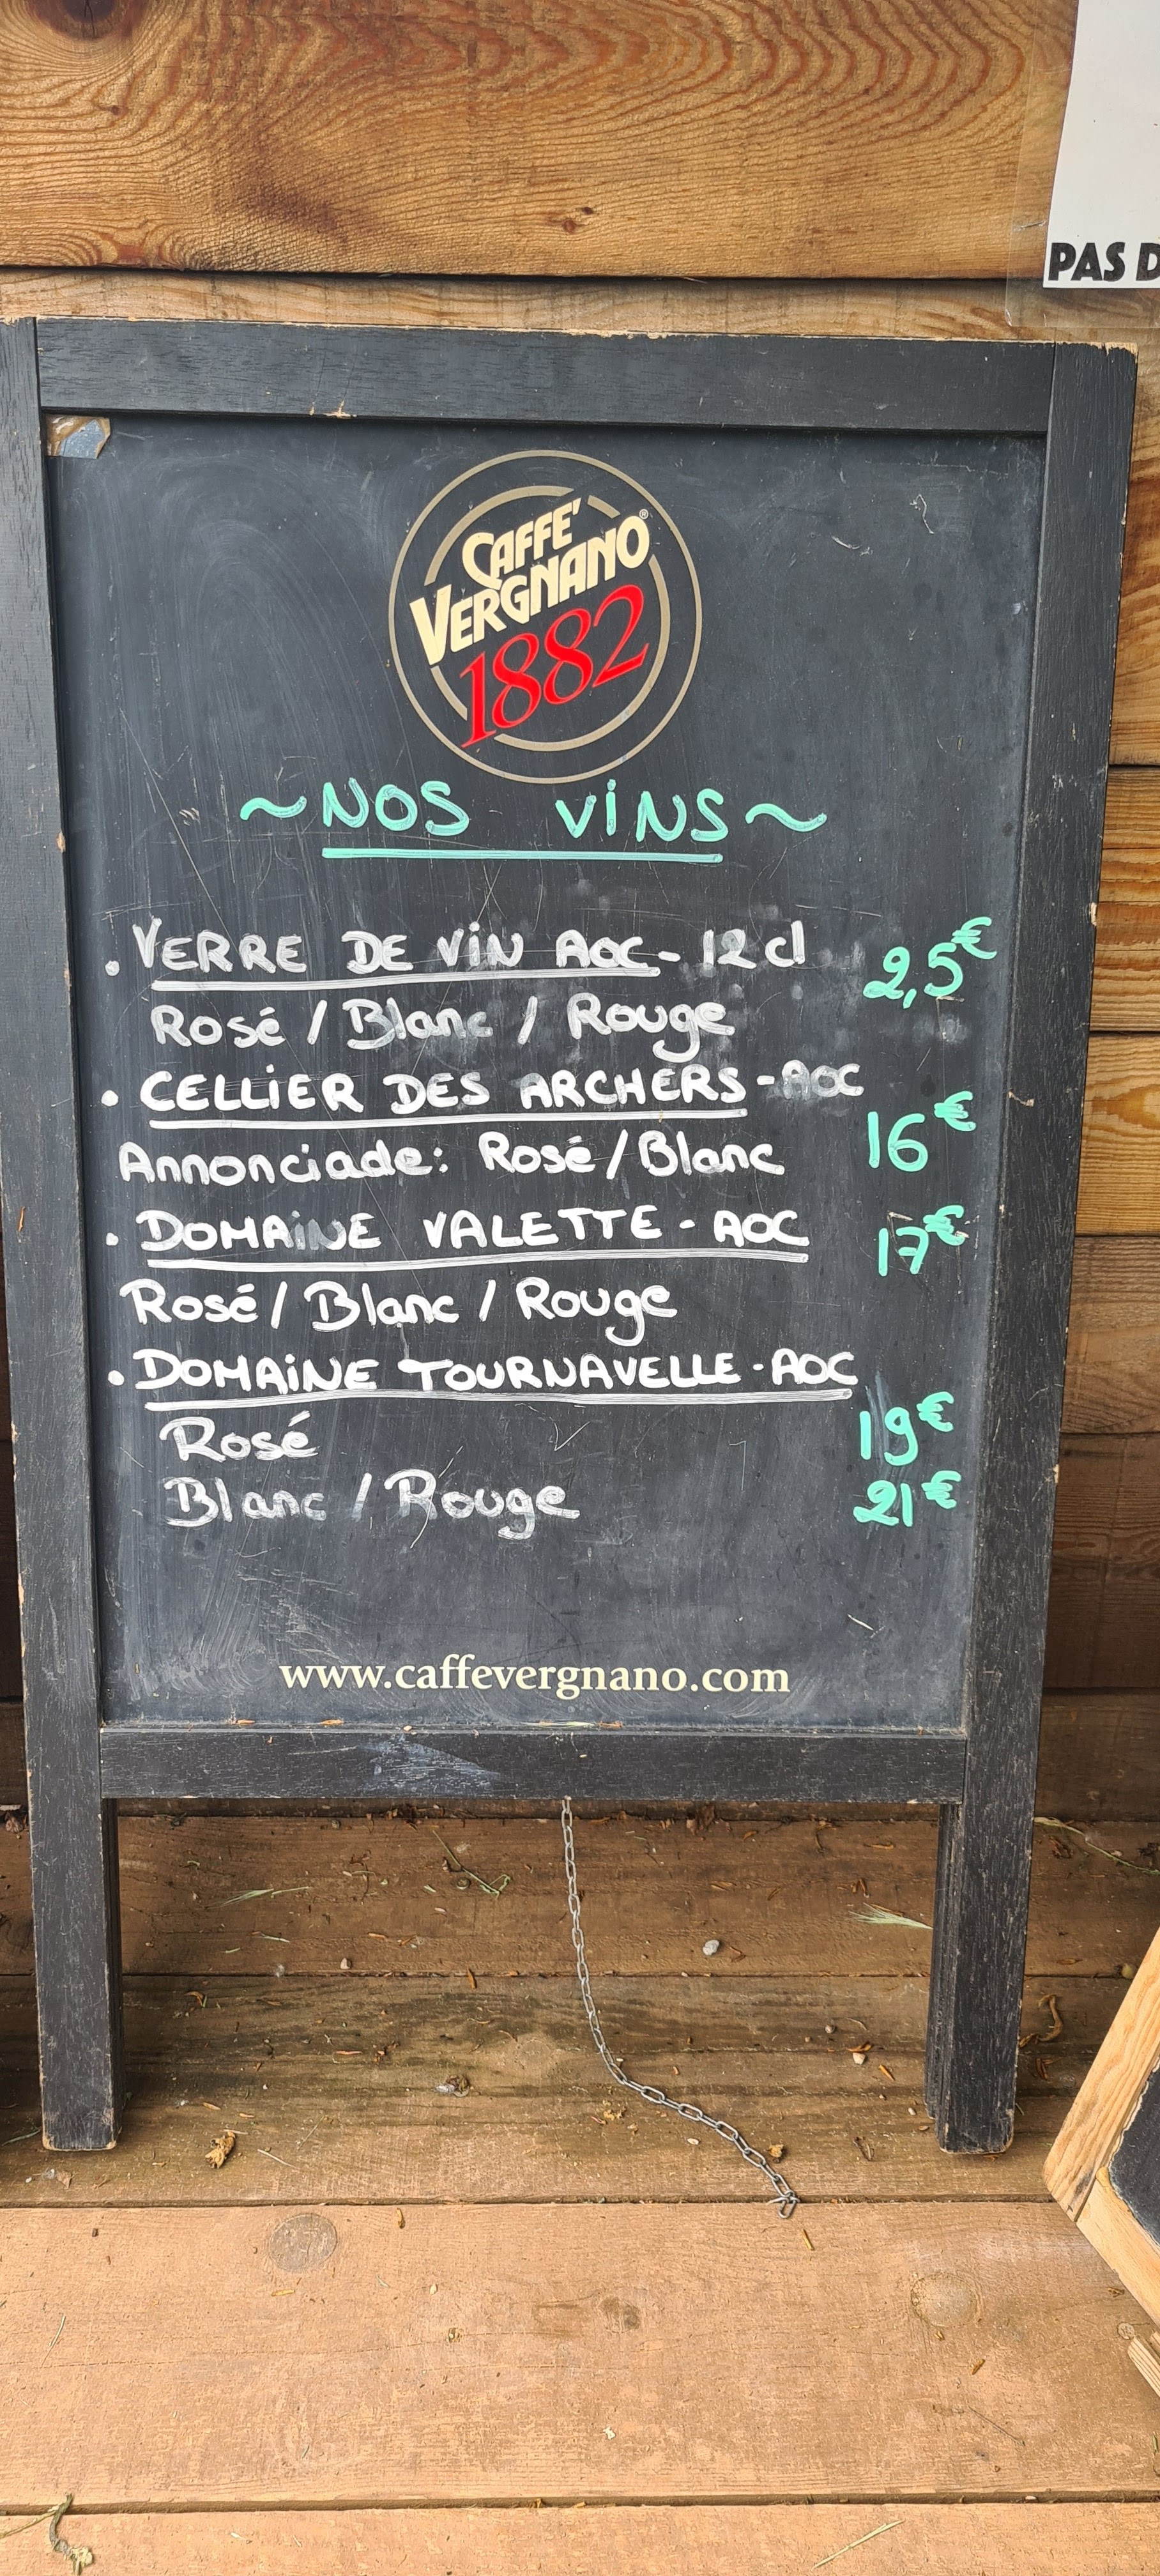 PAS D
CAFFE'
VERGNANO®
1882
~NOS VINS~
. VERRE DE VIN AOC - 12cl 2,5€
Rosé / Blanc / Rouge
. CELLIER DES ARCHERS - AOC
Annonciade: Rosé / Blanc 16€
. DOMAINE VALETTE - AOC 17€
Rosé / Blanc / Rouge
. DOMAINE TOURNAVELLE - AOC
Rosé 19€
Blanc / Rouge 21€
www.caffevergnano.com